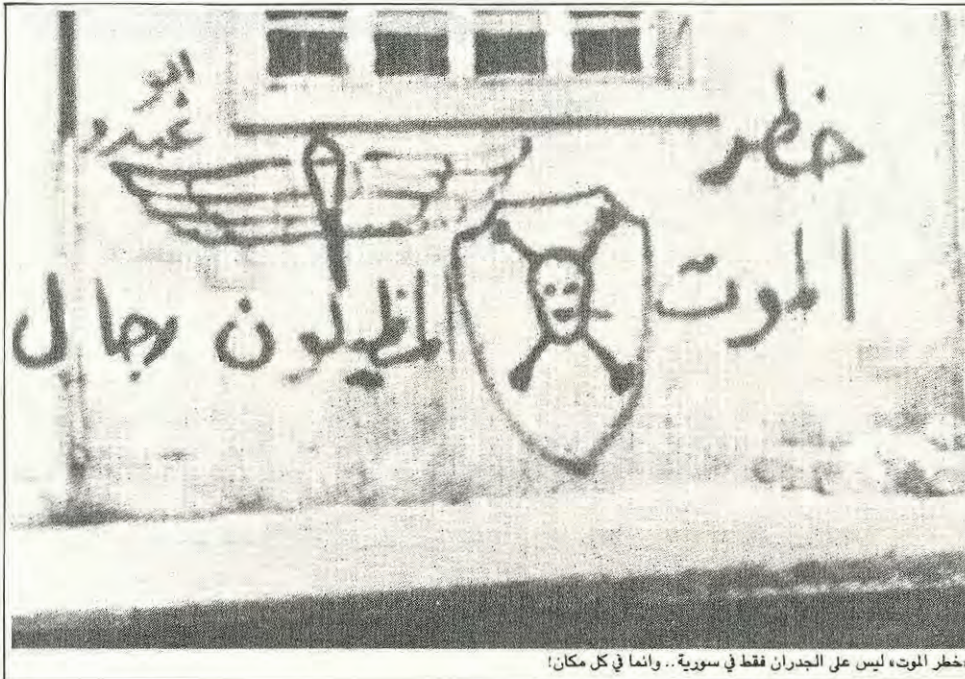 ابو
عبدو
خطر
الموت
المظليون رجال
«خطر الموت» ليس على الجدران فقط في سورية.. وانما في كل مكان!